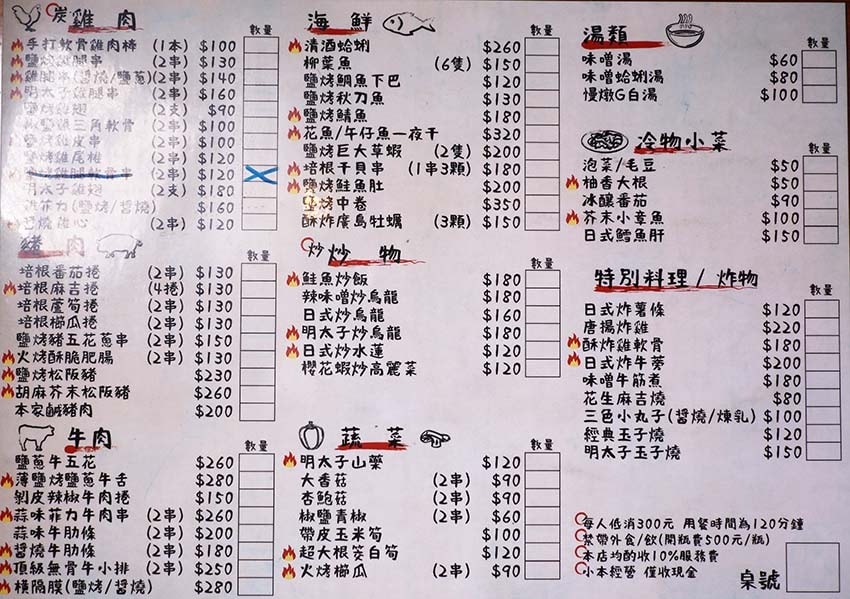 炭 雞肉 數量
手打軟骨雞肉棒 (1本) $100
鹽烤雞腿串 (2串) $130
雞腿串(醬燒/鹽蔥)(2串) $140
明太子雞腿串 (2串) $160
鹽烤雞翅 (2支) $90
椒鹽雞三角軟骨 (2串) $100
鹽烤雞皮串 (2串) $100
鹽烤雞尾椎 (2串) $120
鹽烤雞腿軟骨串 (2串) $120
明太子雞翅 (2支) $180
菲力(鹽烤/醬燒) $160
醬燒雞心 (2串) $120
豬肉 數量
培根番茄捲 (2串) $130
培根麻吉捲 (4捲) $130
培根蘆筍捲 (2串) $130
培根櫛瓜捲 (2串) $130
鹽烤豬五花蔥串 (2串) $150
火烤酥脆肥腸 (2串) $130
鹽烤松阪豬 $230
胡麻芥末松阪豬 $260
本家鹹豬肉 $200
牛肉 數量
鹽蔥牛五花 $260
薄鹽烤鹽蔥牛舌 $280
剝皮辣椒牛肉捲 $150
蒜味菲力牛肉串 (2串) $260
蒜味牛肋條 (2串) $200
醬燒牛肋條 (2串) $180
頂級無骨牛小排 (2串) $250
橫隔膜(鹽烤/醬燒) $280
海鮮 數量
清酒蛤蜊 $260
柳葉魚 (6隻) $150
鹽烤鯛魚下巴 $120
鹽烤秋刀魚 $130
鹽烤鯖魚 $180
花魚/午仔魚一夜干 $320
鹽烤巨大草蝦 (2隻) $200
培根干貝串 (1串3顆) $180
鹽烤鮭魚肚 $200
鹽烤中卷 $350
酥炸廣島牡蠣 (3顆) $150
炒 炒物 數量
鮭魚炒飯 $180
辣味噌炒烏龍 $180
日式炒烏龍 $160
明太子炒烏龍 $180
日式炒水蓮 $120
櫻花蝦炒高麗菜 $120
蔬菜 數量
明太子山藥 $120
大香菇 (2串) $90
杏鮑菇 (2串) $90
椒鹽青椒 (2串) $60
帶皮玉米筍 $100
超大根筊白筍 $120
火烤櫛瓜 (2串) $90
湯類 數量
味噌湯 $60
味噌蛤蜊湯 $80
慢燉G白湯 $100
冷物小菜 數量
泡菜/毛豆 $50
柚香大根 $50
冰釀番茄 $90
芥末小章魚 $100
日式鱈魚肝 $150
特別料理/炸物 數量
日式炸薯條 $120
唐揚炸雞 $220
酥炸雞軟骨 $180
日式炸牛蒡 $200
味噌牛筋煮 $180
花生麻吉燒 $80
三色小丸子(醬燒/煉乳) $100
經典玉子燒 $120
明太子玉子燒 $150
每人低消300元 用餐時間為120分鐘
禁帶外食/飲(開瓶費500元/瓶)
本店均酌收10%服務費
小本經營 僅收現金
桌號